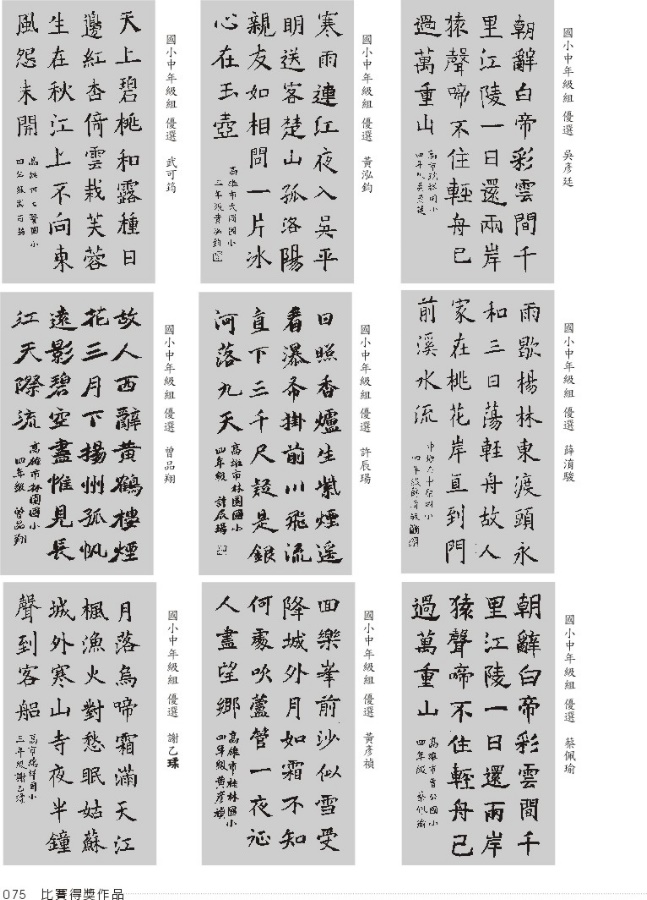 國小中年級組 優選 吳彥廷
朝辭白帝彩雲間千
里江陵一日還兩岸
猿聲啼不住輕舟已
過萬重山
國小中年級組 優選 黃泓鈞
寒雨連紅夜入吳平
明送客楚山孤洛陽
親友如相問一片冰
心在玉壺
國小中年級組 優選 武可筠
天上碧桃和露種日
邊紅杏倚雲栽芙蓉
生在秋江上不向東
風怨未開
國小中年級組 優選 薛淯駿
雨歇楊林東渡頭永
和三日蕩輕舟故人
家在桃花岸直到門
前溪水流
國小中年級組 優選 許辰瑒
日照香爐生紫煙遙
看瀑布掛前川飛流
直下三千尺疑是銀
河落九天
高雄市林園國小
四年級 許辰瑒
國小中年級組 優選 曾品翔
故人西辭黃鶴樓煙
花三月下揚州孤帆
遠影碧空盡惟見長
江天際流
高雄市林園國小
四年級 曾品翔
國小中年級組 優選 蔡佩瑜
朝辭白帝彩雲間千
里江陵一日還兩岸
猿聲啼不住輕舟已
過萬重山
高雄市曹公國小
四年級 蔡佩瑜
國小中年級組 優選 黃彥禎
回樂峯前沙似雪受
降城外月如霜不知
何處吹蘆管一夜征
人盡望鄉
高雄市桂林國小
四年級黃彥禎
國小中年級組 優選 謝乙瑈
月落烏啼霜滿天江
楓漁火對愁眠姑蘇
城外寒山寺夜半鐘
聲到客船
075 比賽得獎作品